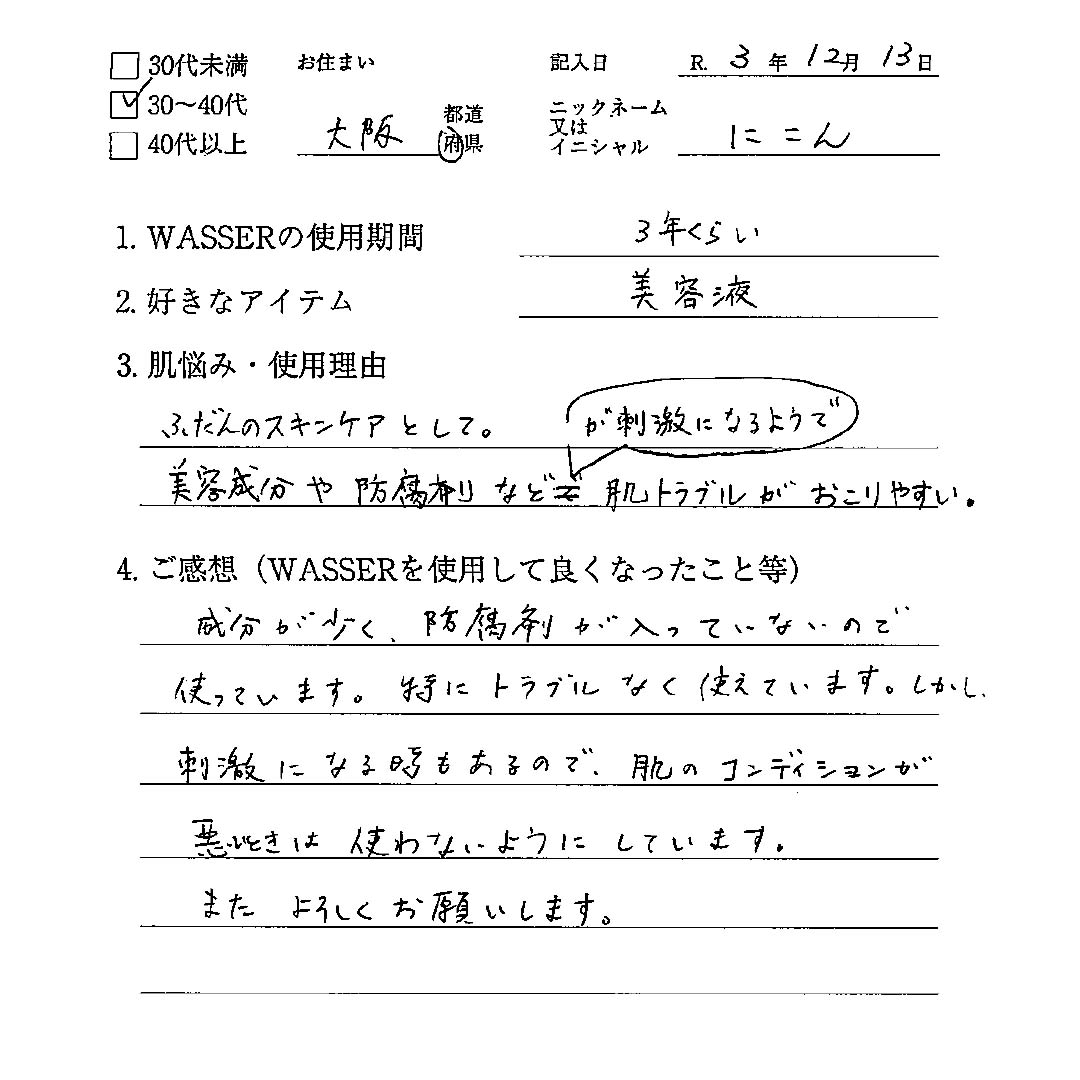 30代未満 お住まい 記入日 R. 3年12月13日
30〜40代
40代以上 大阪 都道府県 ニックネーム又はイニシャル にこん
1. WASSERの使用期間 3年くらい
2. 好きなアイテム 美容液
3. 肌悩み・使用理由
ふだんのスキンケアとして。 が刺激になるようで
美容成分や防腐剤など 肌トラブルがおこりやすい。
4. ご感想（WASSERを使用して良くなったこと等）
成分が少く、防腐剤が入っていないので
使っています。特にトラブルなく使えています。しかし、
刺激になる時もあるので、肌のコンディションが
悪いときは使わないようにしています。
またよろしくお願いします。